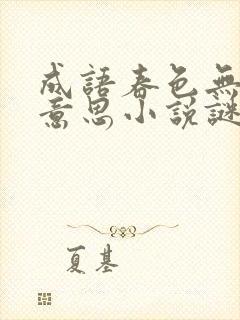 成語春色無
意思小說謎
夏基